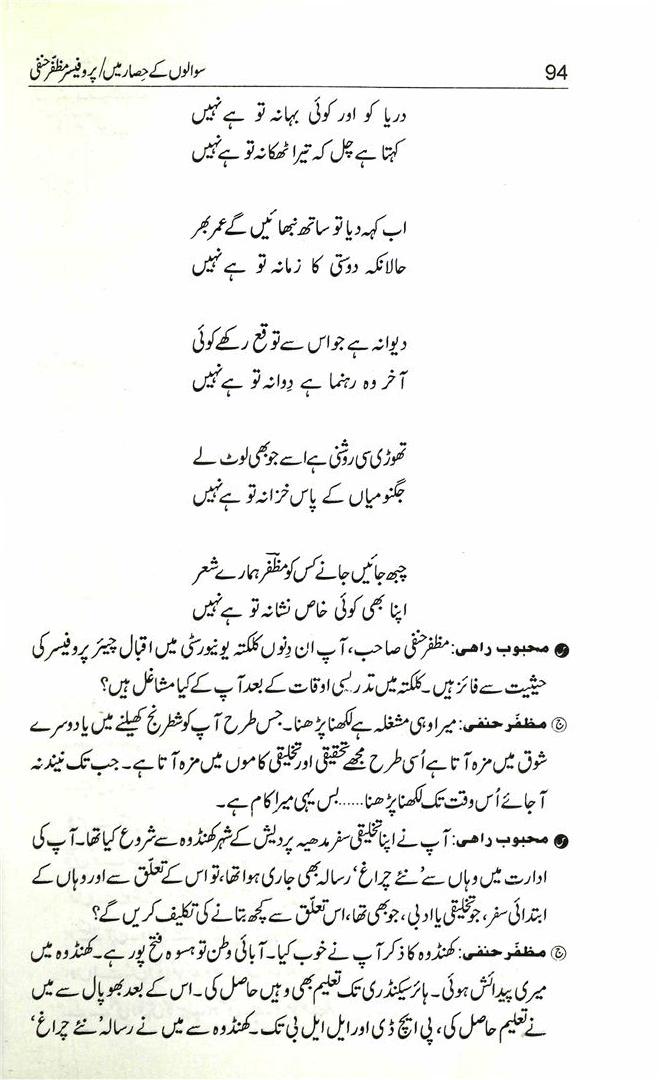 94
سوالوں کے حصار میں/پروفیسر مظفّر حنفی
دریا کو اور کوئی بہانہ تو ہے نہیں
کہتا ہے چل کہ تیرا ٹھکانہ تو ہے نہیں
اب کہہ دیا تو ساتھ نبھائیں گے عمر بھر
حالانکہ دوستی کا زمانہ تو ہے نہیں
دیوانہ ہے جو اس سے توقع رکھے کوئی
آخر وہ رہنما ہے دِوانہ تو ہے نہیں
تھوڑی سی روشنی ہے اسے جو بھی لوٹ لے
جگنو میاں کے پاس خزانہ تو ہے نہیں
چبھ جائیں جانے کس کو مظفرؔ ہمارے شعر
اپنا بھی کوئی خاص نشانہ تو ہے نہیں
محبوب راھی: مظفر حنفی صاحب، آپ ان دِنوں کلکتہ یونیورسٹی میں اقبال چیئر پروفیسر کی
حیثیت سے فائز ہیں۔ کلکتہ میں تدریسی اوقات کے بعد آپ کے کیا مشاغل ہیں؟
ج مظفّر حنفی: میرا وہی مشغلہ ہے لکھنا پڑھنا۔ جس طرح آپ کو شطرنج کھیلنے میں یا دوسرے
شوق میں مزہ آتا ہے اُسی طرح مجھے تحقیقی اور تخلیقی کاموں میں مزہ آتا ہے۔ جب تک نیند نہ
آ جائے اُس وقت تک لکھنا پڑھنا......بس یہی میرا کام ہے۔
محبوب راھی: آپ نے اپنا تخلیقی سفر مدھیہ پردیش کے شہر کھنڈوہ سے شروع کیا تھا۔ آپ کی
ادارت میں وہاں سے ’نئے چراغ‘ رسالہ بھی جاری ہوا تھا، تو اس کے تعلّق سے اور وہاں کے
ابتدائی سفر، جو تخلیقی یا ادبی، جو بھی تھا، اس تعلّق سے کچھ بتانے کی تکلیف کریں گے؟
ج مظفّر حنفی: کھنڈوہ کا ذکر آپ نے خوب کیا۔ آبائی وطن تو ہسوہ فتح پور ہے۔ کھنڈوہ میں
میری پیدائش ہوئی۔ ہائر سیکنڈری تک تعلیم بھی وہیں حاصل کی۔ اس کے بعد بھوپال سے میں
نے تعلیم حاصل کی، پی ایچ ڈی اور ایل ایل بی تک۔ کھنڈوہ سے میں نے رسالہ ’نئے چراغ‘